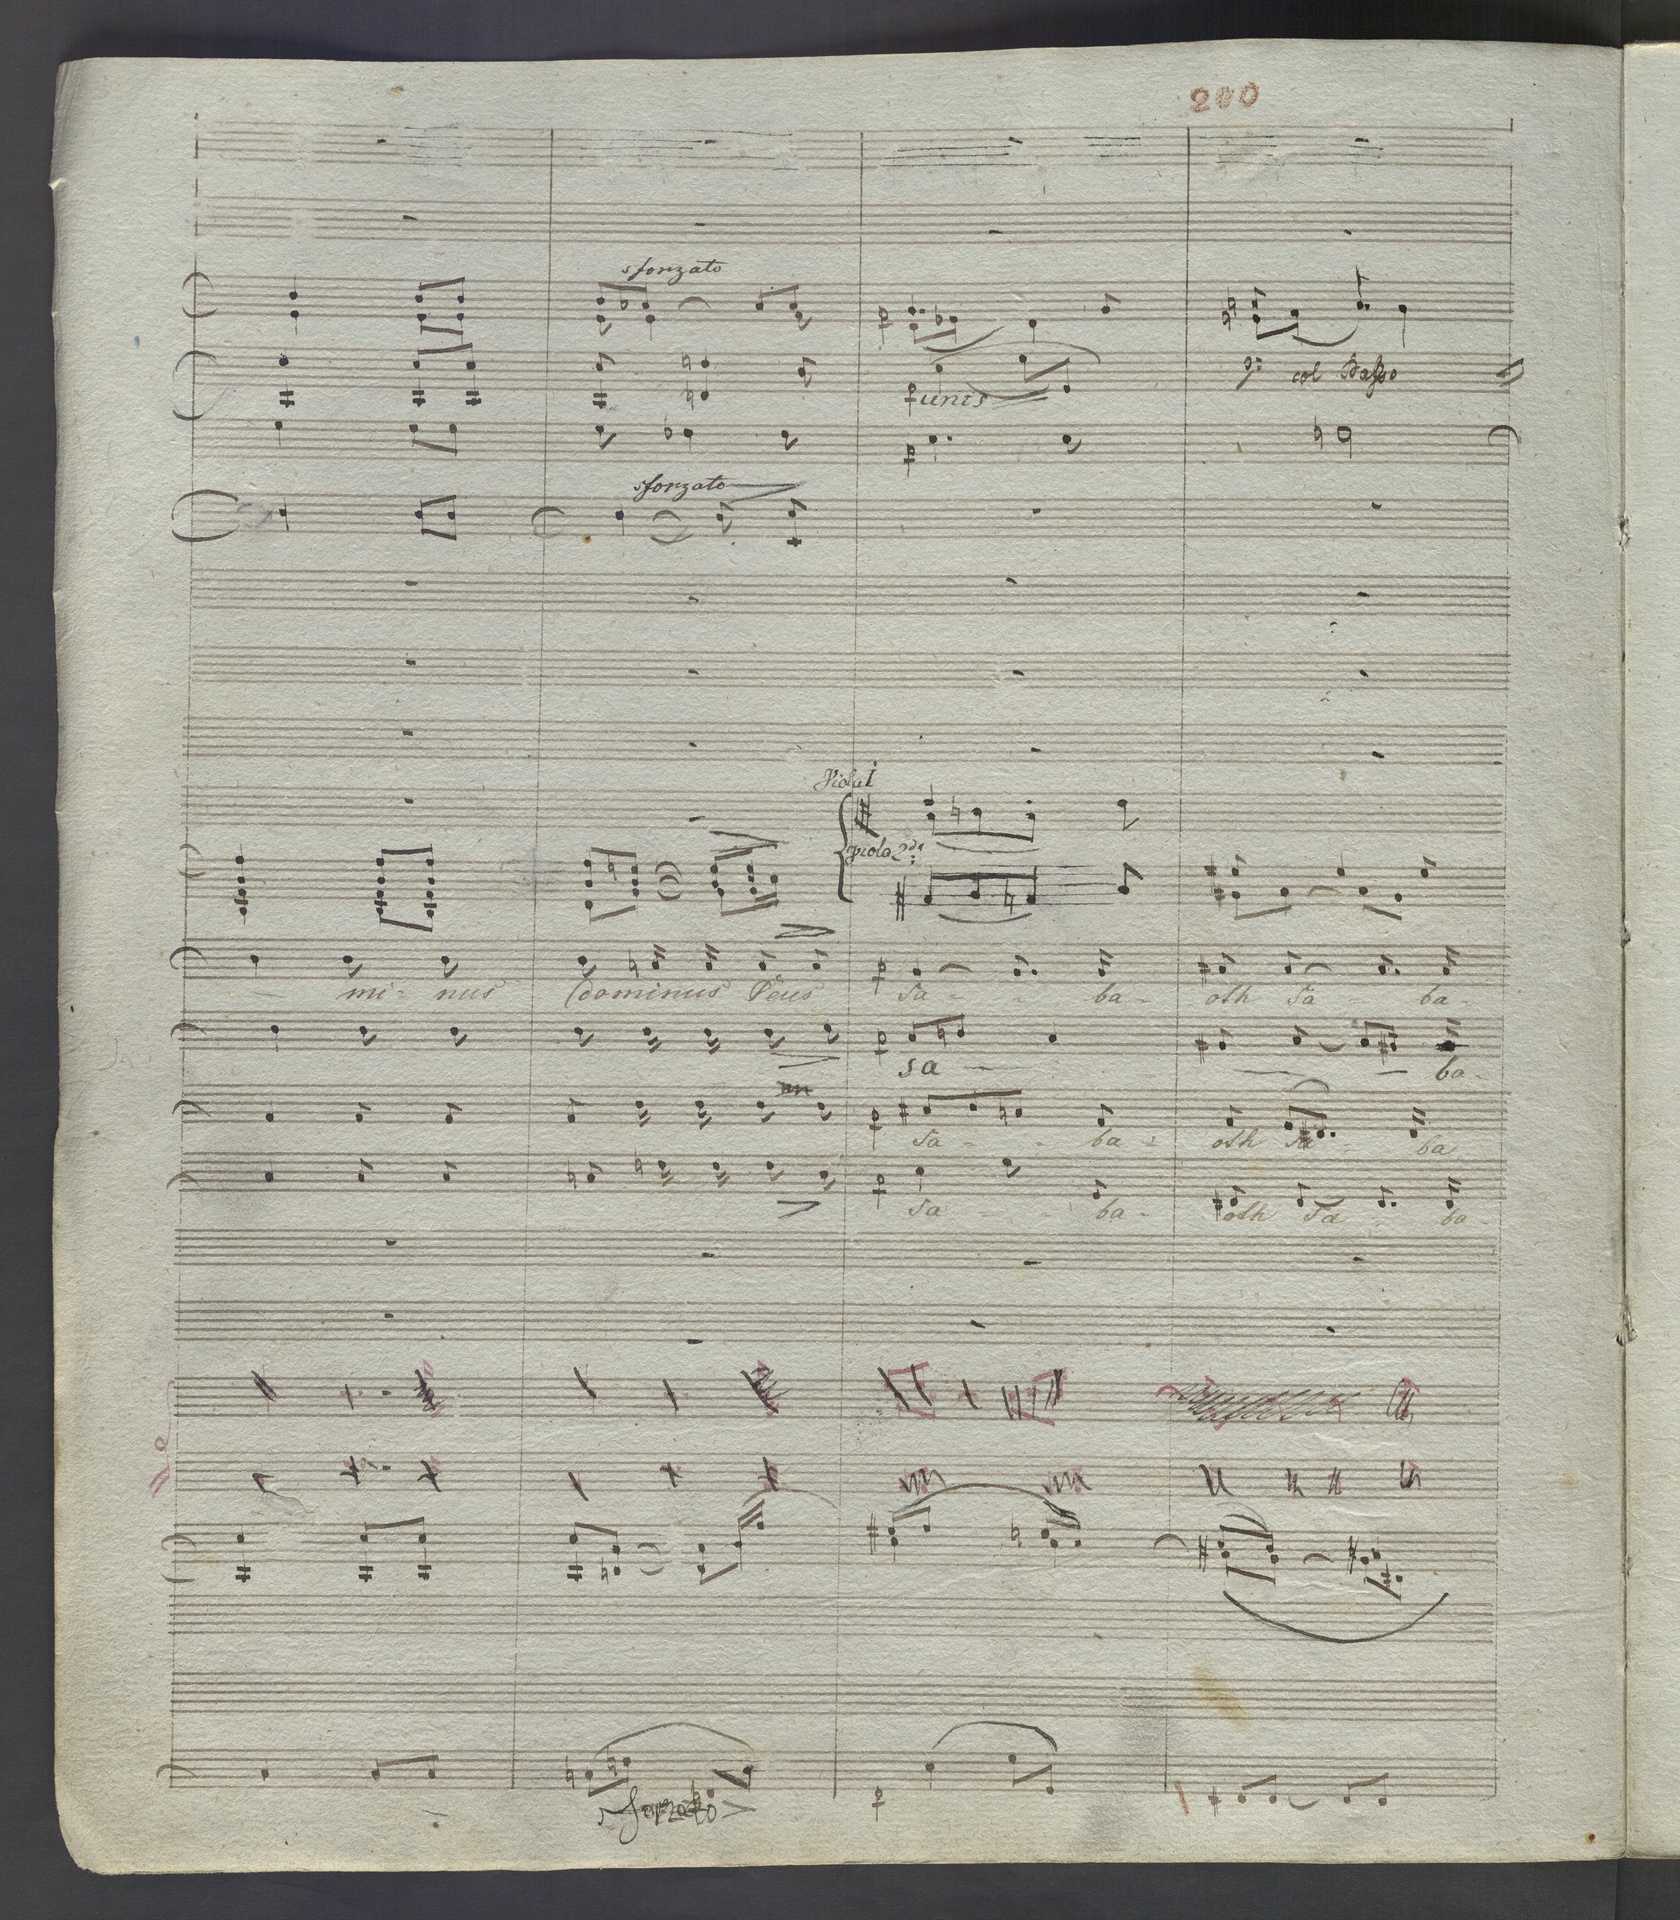 200
sforzato
unis
col Basso
sforzato
Viola I
Viola 2da
mi - nus dominus Deus Sa - - ba - oth Sa - ba -
sa - ba -
Sa - - ba - oth Sa - ba
Sa - - ba - oth Sa - ba -
sforzato